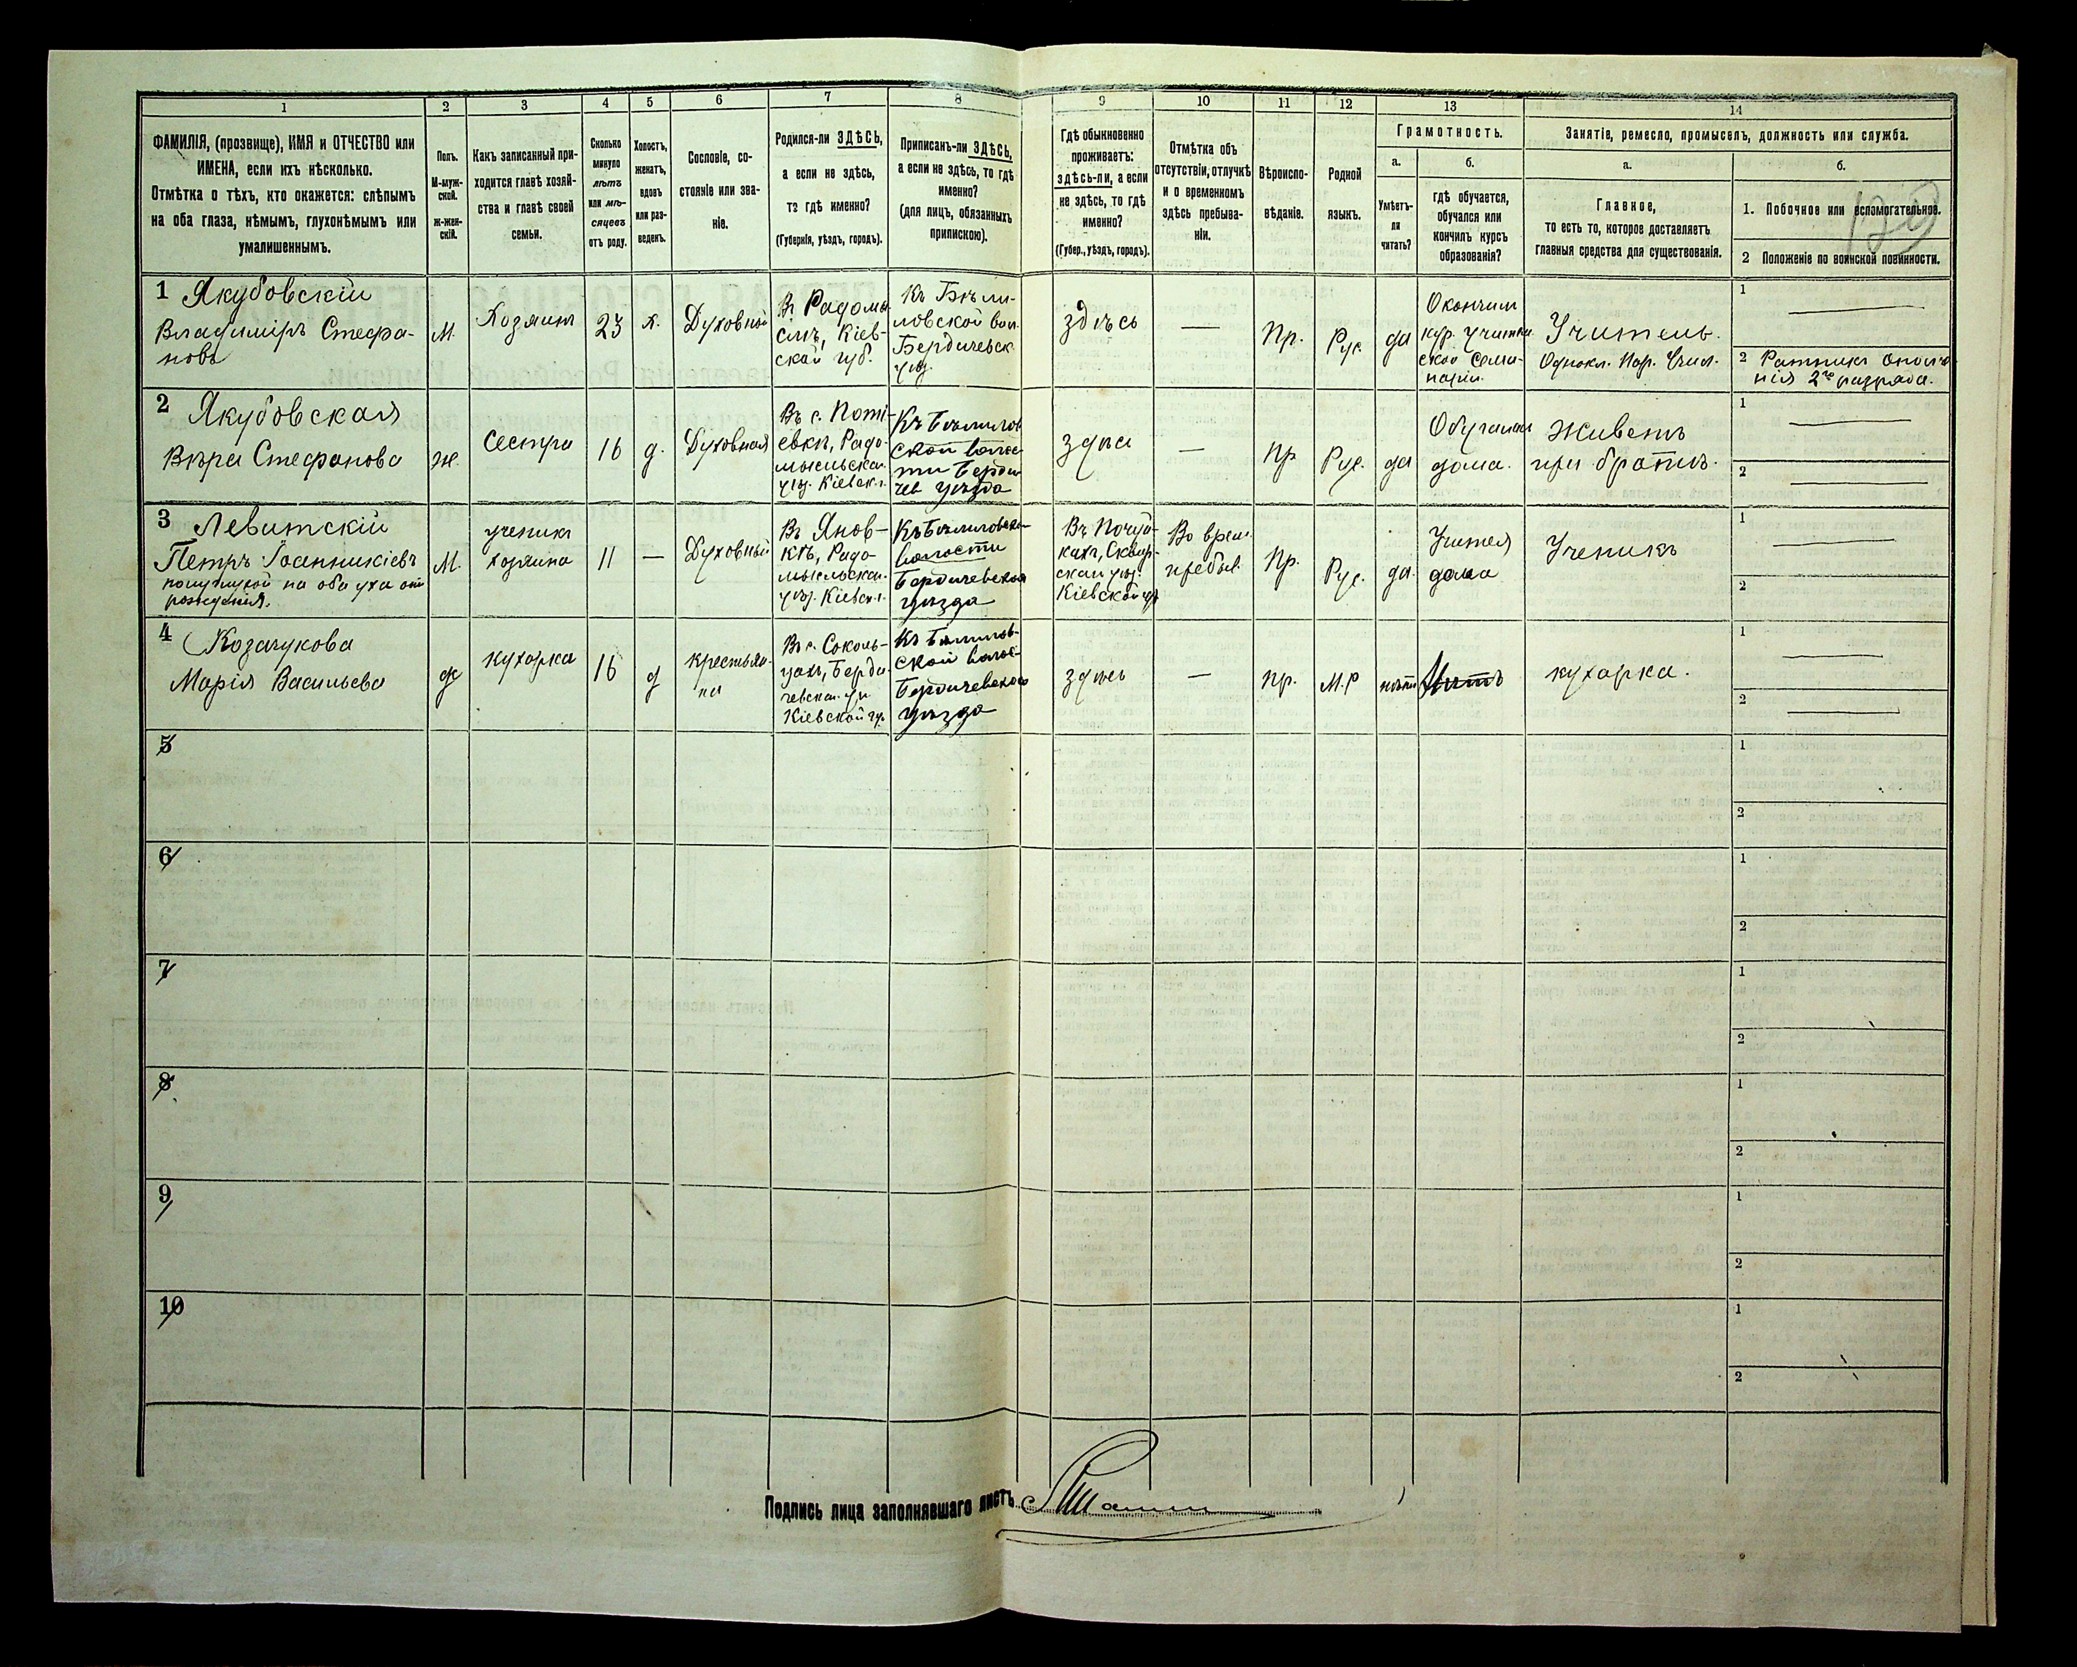 1 2 3 4 5 6 7 8 9 10 11 12 13 14
ФАМИЛІЯ, (прозвище), ИМЯ и ОТЧЕСТВО или
ИМЕНА, если ихъ нѣсколько.
Отмѣтка о тѣхъ, кто окажется: слѣпымъ
на оба глаза, нѣмымъ, глухонѣмымъ или
умалишеннымъ.
Полъ.
М-муж-
ской.
Ж-жен-
скій.
Какъ записанный при-
ходится главѣ хозяй-
ства и главѣ своей
семьи.
Сколько
минуло
лѣтъ
или мѣ-
сяцевъ
отъ роду.
Холостъ,
женатъ,
вдовъ
или раз-
веденъ.
Сословіе, со-
стояніе или зва-
ніе.
Родился-ли ЗДѢСЬ,
а если не здѣсь,
то гдѣ именно?
(Губернія, уѣздъ, городъ).
Приписанъ-ли ЗДѢСЬ,
а если не здѣсь, то гдѣ
именно?
(для лицъ, обязанныхъ
припискою).
Гдѣ обыкновенно
проживаетъ:
здѣсь-ли, а если
не здѣсь, то гдѣ
именно?
(Губер., уѣздъ, городъ).
Отмѣтка объ
отсутствіи, отлучкѣ
и о временномъ
здѣсь пребыва-
ніи.
Вѣроиспо-
вѣданіе.
Родной
языкъ.
Грамотность.
а.
Умѣетъ-
ли
читать?
б.
гдѣ обучается,
обучался или
кончилъ курсъ
образованія?
Занятіе, ремесло, промыселъ, должность или служба.
а.
Главное,
то есть то, которое доставляетъ
главныя средства для существованія.
б.
1. Побочное или вспомогательное.
2 Положеніе по воинской повинности.
1 Якубовскій
Владиміръ Стефа-
новъ
М.
Хозяинъ
23
х.
Духовной
Въ Радомы
слѣ, Кіев-
ской губ.
Къ Бѣли-
ловской вол.
Бердичевск.
уѣз.
здѣсь
—
Пр.
Рус.
да
Окончил
кур. учител
ской семи-
наріи.
Учитель.
Однокл. Нар. Учил.
1 —
2 Ратникъ ополче
нія 2го разряда.
2 Якубовская
Вѣра Стефанова
Ж.
Сестра
16
д.
Духовная
Въ с. Поті-
евкѣ, Радо-
мысльска.
уѣз. Кіевск.
Къ Бѣлилов
ской волос
ти Бердич
чев уѣзда
здѣсь
—
Пр
Рус.
да
Обучалась
дома.
Живетъ
при братѣ.
1 —
2 —
3 Левитскій
Петръ Іоанникіевъ
полуглухой на оба уха отъ
рожденія.
М.
ученикъ
хозяина
11
—
Духовный
Въ Янов-
кѣ, Радо-
мысльска.
уѣз. Кіевск.
Къ Бѣлиловской
волости
Бердичевскаго
уѣзда
Въ Почуй-
кахъ, Сквир-
скаго уѣз.
Кіевской губ
Во врем.
пребыв.
Пр.
Рус.
да.
Учится
дома
Ученикъ
1 —
2
4 Козачукова
Марія Васильева
ж
кухарка
16
д
крестьян-
ка
Въ с. Соколь-
цахъ, Берди-
чевска. уѣз.
Кіевской гу.
Къ Бѣлилов-
ской волос-
Бердичевскаго
уѣзда
здѣсь
—
пр.
М.Р
нѣтъ
Нѣтъ
кухарка.
1 —
2 —
5 1
2
6 1
2
7 1
2
8 1
2
9 1
2
10 1
2
Подпись лица заполнявшаго листъ